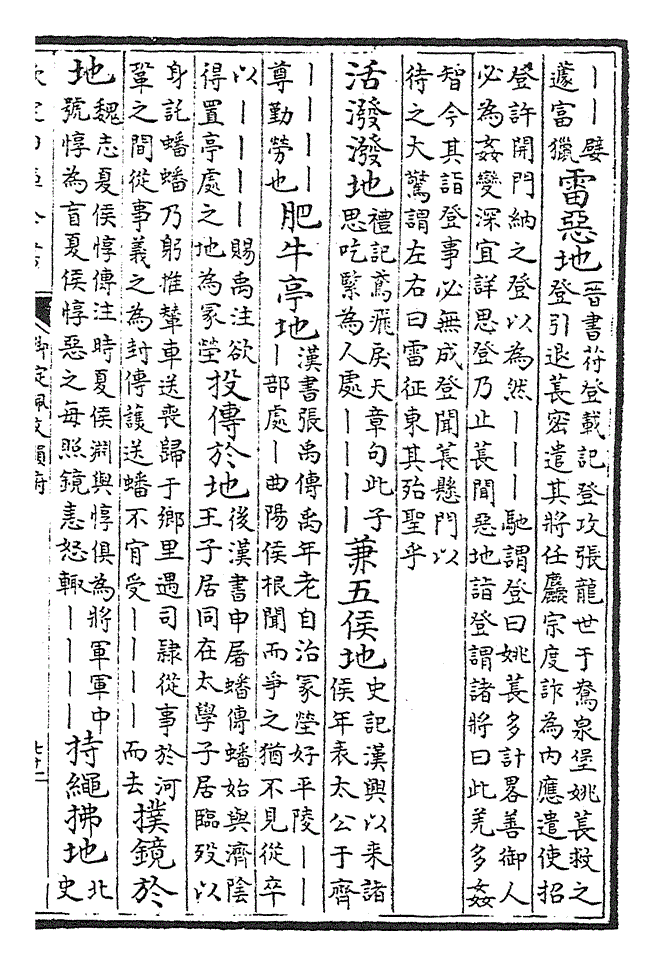 ｜｜嬖
蘧富獵
雷惡地
晉書苻登載記登攻張龍世于鴦泉堡姚萇救之
登引退萇密遣其將任䴡宗度詐為内應遣使招
登許開門納之登以為然｜｜｜馳謂登曰姚萇多計畧善御人
必為姦變深宜詳思登乃止萇聞惡地詣登謂諸將曰此羌多姦
智今其詣登事必無成登聞萇懸門以
待之大驚謂左右曰雷征東其殆聖乎
活潑潑地
禮記鳶飛戾天章句此子
思吃緊為人處｜｜｜｜
兼五侯地
史記漢興以来諸
侯年表太公于齊
｜｜｜｜
尊勤勞也
肥牛亭地
漢書張禹傳禹年老自治冢塋好平陵｜｜
｜部處｜曲陽侯根聞而爭之猶不見從卒
以｜｜｜｜賜禹注欲
得置亭處之地為冢塋
投傳於地
後漢書申屠蟠傳蟠始與濟陰
王子居同在太學子居臨歿以
身託蟠蟠乃躬推輦車送喪歸于鄉里遇司隸從事於河
鞏之間從事義之為封傳護送蟠不肎受｜｜｜｜而去
撲鏡於
地
魏志夏侯惇傳注時夏侯淵與惇俱為將軍軍中
號惇為盲夏侯惇惡之每照鏡恚怒輙｜｜｜｜
持繩拂地
北
史